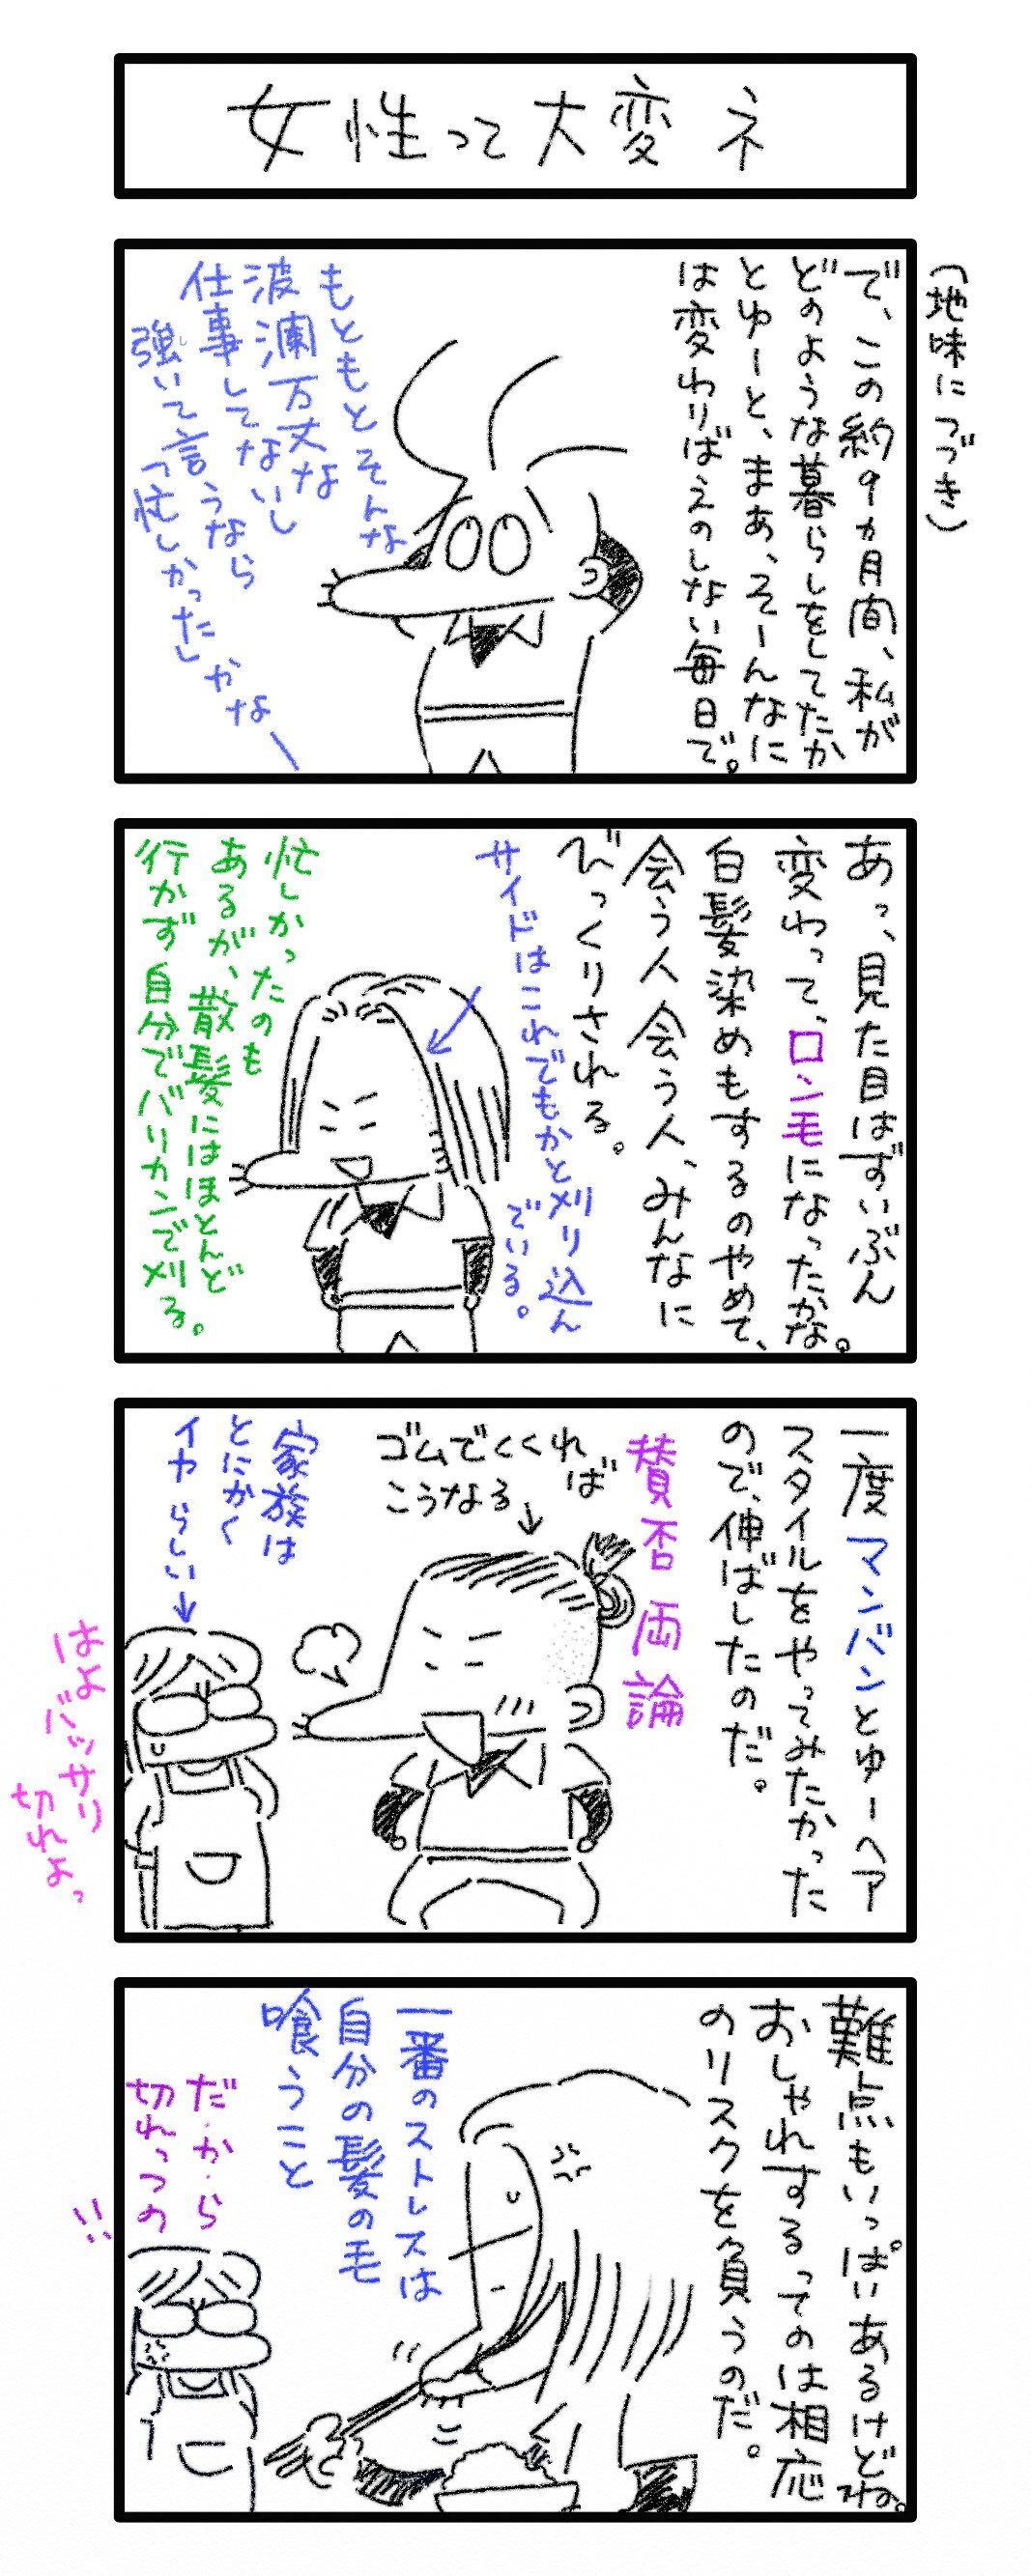 女性って大変ネ
(地味につづき)
で、この約9ヵ月間、私が
どのような暮らしをしてたか
とゆーと、まあ、そーんなに
は変わりばえのしない毎日で。
もともとそんな
波瀾万丈な
仕事してないし
強いて言うなら
「忙しかった」かなー
あっ、見た目はずいぶん
変わって、ロン毛になったかな。
白髪染めもするのやめて、
会う人会う人、みんなに
びっくりされる。
サイドはこれでもかと刈り込ん
でいる。
忙しかったのも
あるが、散髪にはほとんど
行かず自分でバリカンで刈る。
一度マンバンとゆーヘア
スタイルをやってみたかった
ので、伸ばしたのだ。
賛否両論
ゴムでくくれば
こうなる
家族は
とにかく
イヤらしい
はよ
バッサリ
切れよっ
難点もいっぱいあるけどね。
おしゃれするってのは相応
のリスクを負うのだ。
一番のストレスは
自分の髪の毛
喰うこと
だ・か・ら
切れっつの
!!